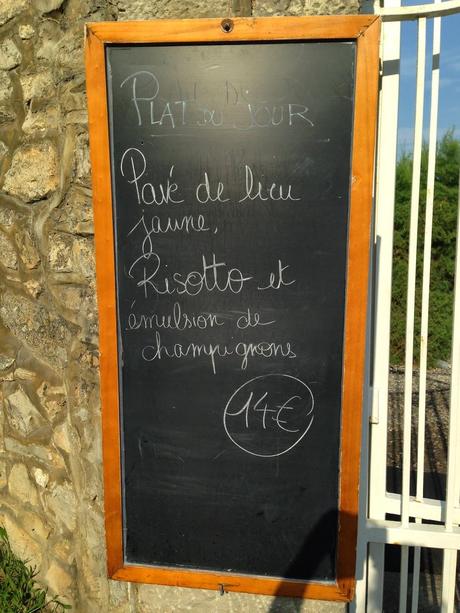 PLAT DU JOUR
Pavé de lieu
jaune,
Risotto et
émulsion de
champignons
14€